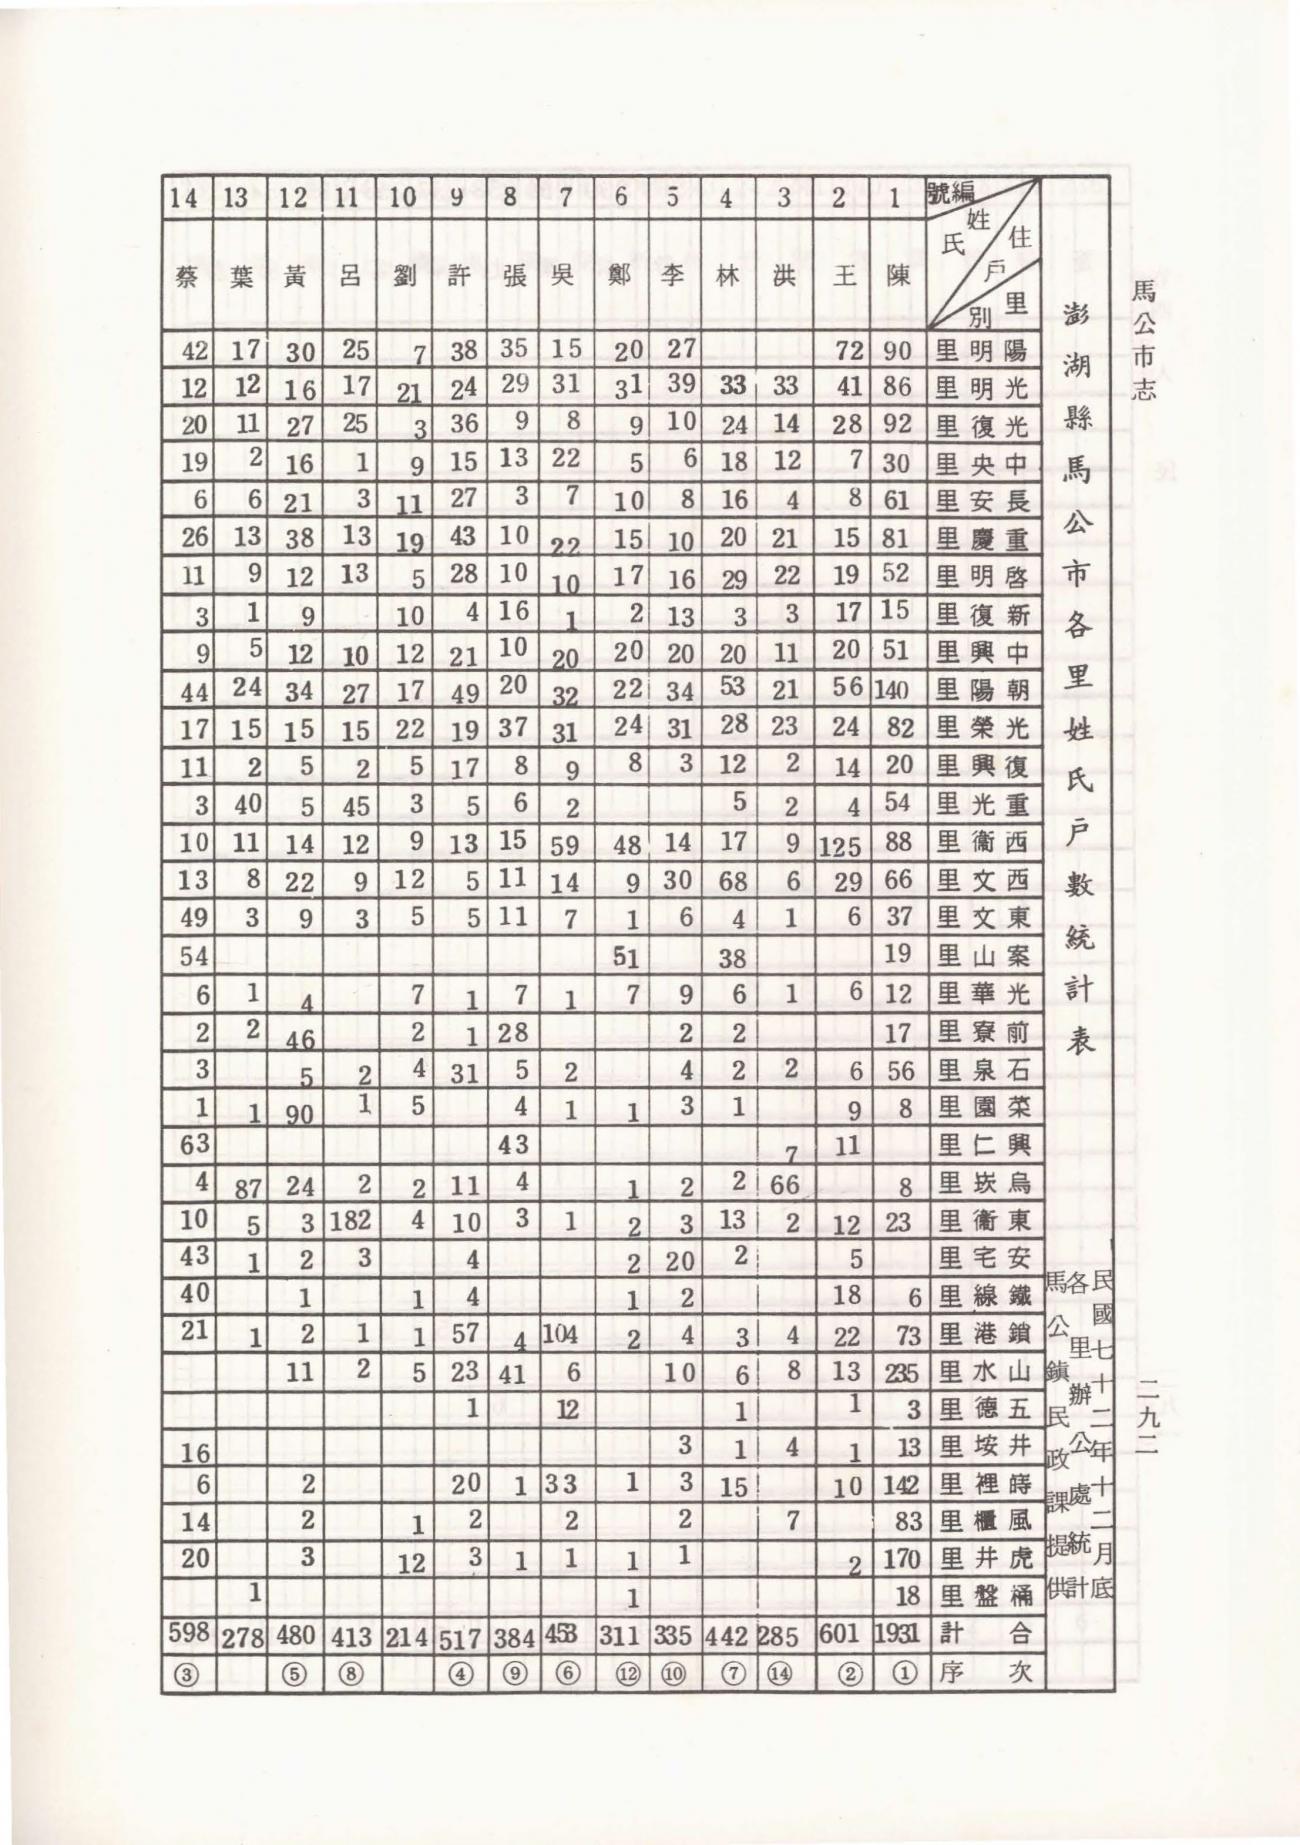 馬公市志
二九二
澎湖縣馬公市各里姓氏戶數統計表
民國七十二年十二月底
各里辦公處統計
馬公鎮民政課提供
編號 1 2 3 4 5 6 7 8 9 10 11 12 13 14
住里 戶別 姓氏 陳 王 洪 林 李 鄭 吳 張 許 劉 呂 黃 葉 蔡
陽明里 90 72 27 20 15 35 38 7 25 30 17 42
光明里 86 41 33 33 39 31 31 29 24 21 17 16 12 12
光復里 92 28 14 24 10 9 8 9 36 3 25 27 11 20
中央里 30 7 12 18 6 5 22 13 15 9 1 16 2 19
長安里 61 8 4 16 8 10 7 3 27 11 3 21 6 6
重慶里 81 15 21 20 10 15 22 10 43 19 13 38 13 26
啓明里 52 19 22 29 16 17 10 10 28 5 13 12 9 11
新復里 15 17 3 3 13 2 1 16 4 10 9 1 3
中興里 51 20 11 20 20 20 20 10 21 12 10 12 5 9
朝陽里 140 56 21 53 34 22 32 20 49 17 27 34 24 44
光榮里 82 24 23 28 31 24 31 37 19 22 15 15 15 17
復興里 20 14 2 12 3 8 9 8 17 5 2 5 2 11
重光里 54 4 2 5 2 6 5 3 45 5 40 3
西衞里 88 125 9 17 14 48 59 15 13 9 12 14 11 10
西文里 66 29 6 68 30 9 14 11 5 12 9 22 8 13
東文里 37 6 1 4 6 1 7 11 5 5 3 9 3 49
案山里 19 38 51 54
光華里 12 6 1 6 9 7 1 7 1 7 4 1 6
前寮里 17 2 2 28 1 2 46 2 2
石泉里 56 6 2 2 4 2 5 31 4 2 5 3
菜園里 8 9 1 3 1 1 4 5 1 90 1 1
興仁里 11 7 43 63
烏崁里 8 66 2 2 1 4 11 2 2 24 87 4
東衞里 23 12 2 13 3 2 1 3 10 4 182 3 5 10
安宅里 5 2 20 2 4 3 2 1 43
鐵線里 6 18 2 1 4 1 1 40
鎖港里 73 22 4 3 4 2 104 4 57 1 1 2 1 21
山水里 235 13 8 6 10 6 41 23 5 2 11
五德里 3 1 1 12 1
井垵里 13 1 4 1 3 16
蒔裡里 142 10 15 3 1 33 1 20 2 6
風櫃里 83 7 2 2 2 1 2 14
虎井里 170 2 1 1 1 1 3 12 3 20
桶盤里 18 1 1
合計 1931 601 285 442 335 311 453 384 517 214 413 480 278 598
次序 ① ② ⑭ ⑦ ⑩ ⑫ ⑥ ⑨ ④ ⑧ ⑤ ③